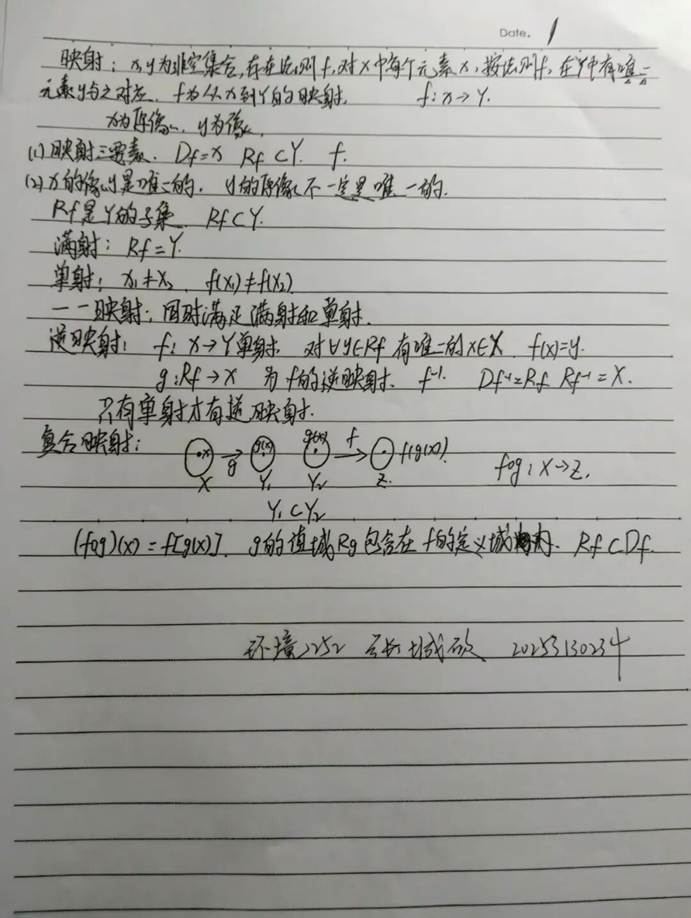 Date. 1
映射：x,y为非空集合,存在法则f,对x中每个元素x,按法则f,在Y中有唯一
元素y与之对应. f为从x到Y的映射. f:x→Y.
x为原像, y为像.
(1)映射三要素. Df=x Rf⊂Y. f.
(2)x的像y是唯一的. y的原像不一定是唯一的.
Rf是Y的子集. Rf⊂Y.
满射: Rf=Y.
单射: x₁≠x₂. f(x₁)≠f(x₂)
一一映射:同时满足满射和单射.
逆映射: f:x→Y单射. 对∀y∈Rf有唯一的x∈X. f(x)=y.
g:Rf→x 为f的逆映射. f⁻¹. Df⁻¹=Rf Rf⁻¹=X.
只有单射才有逆映射.
复合映射: x g g(x) g(x) f f[g(x)].
X Y₁ Y₂ Z fog:X→Z.
Y₁⊂Y₂
(fog)(x)=f[g(x)]. g的值域Rg包含在f的定义域内. Rf⊂Df.
环境2252 20253130234